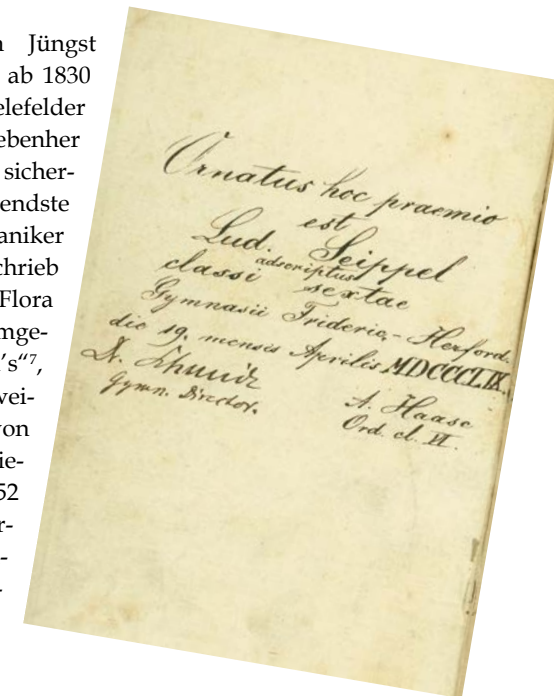 Jüngst
ab 1830
elefelder
ebenher
sicher-
endste
aniker
chrieb
Flora
mge-
's“⁷,
wei-
von
ie-
52
r-
-
Ornatus hoc praemio
est
Lud. Seippel
adscriptus
classi sextae
Gymnasii Frideric.- Herford.
die 19. mensis Aprilis MDCCCLIX.
Gymn. Director.
A. Haase
Ord. cl. VI.